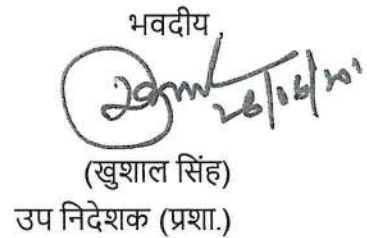 भवदीय,
(खुशाल सिंह)
उप निदेशक (प्रशा.)